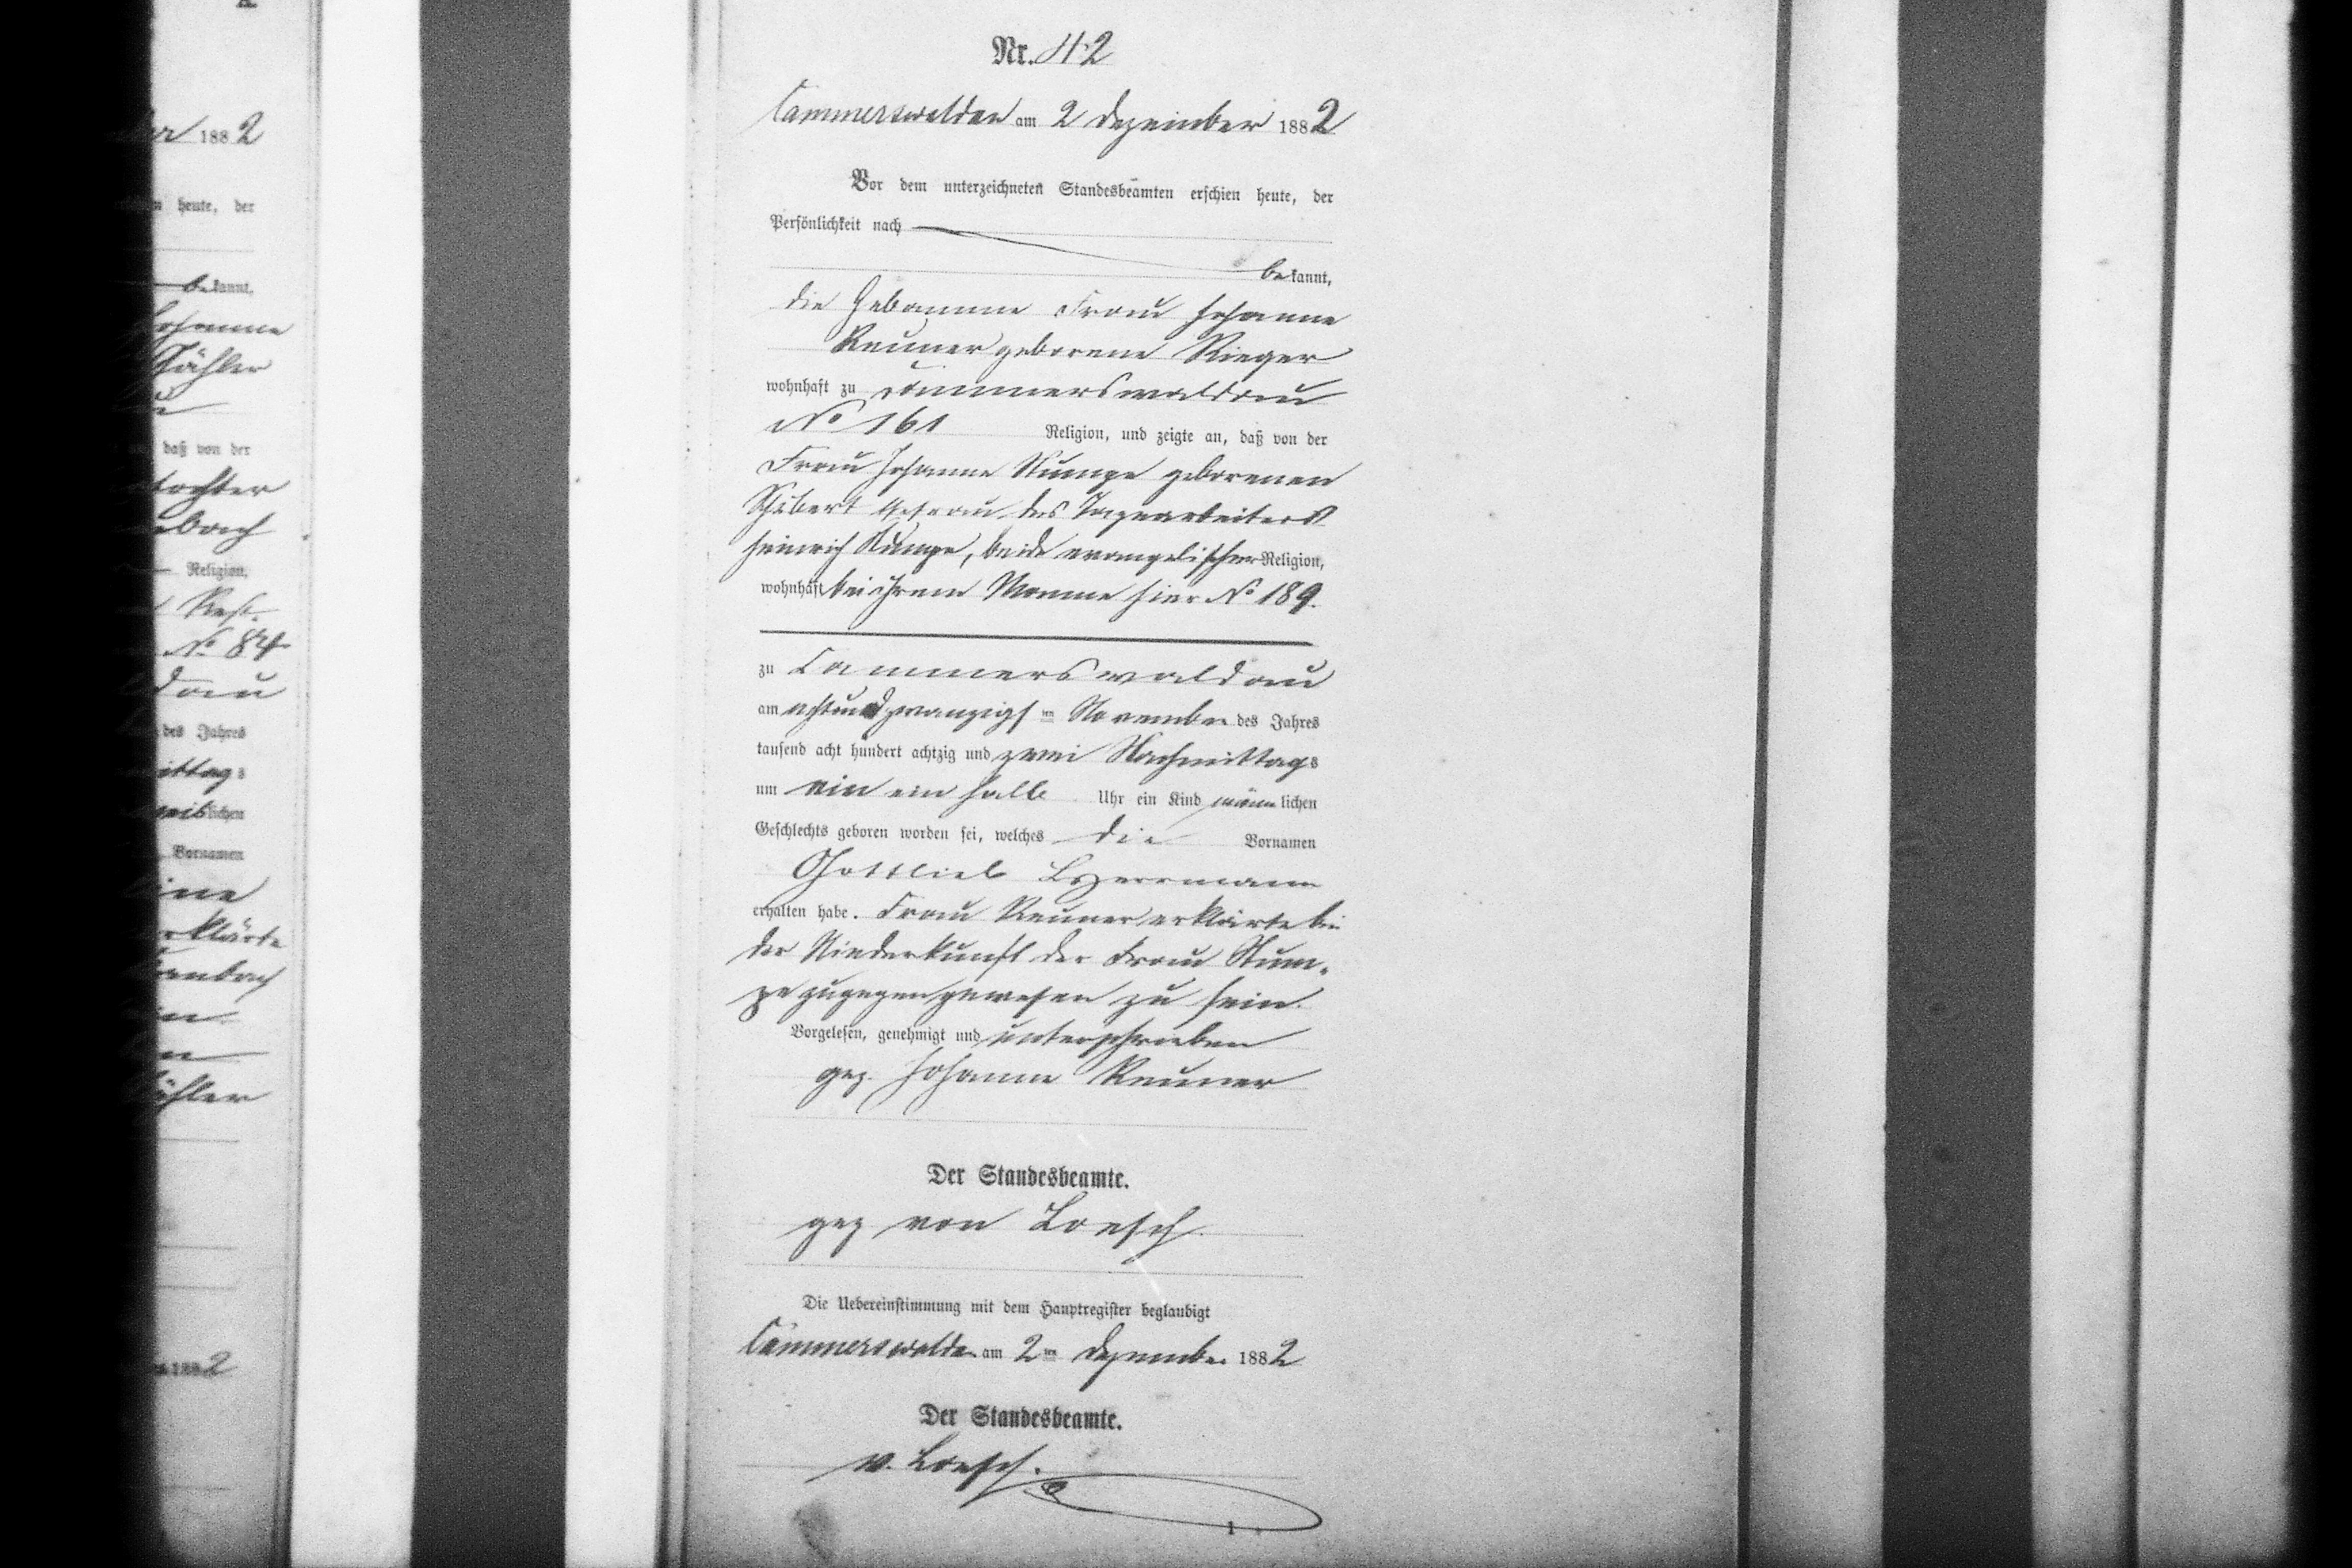 Nr. 42
Cammerswaldau am 2 Dezember 1882
Vor dem unterzeichneten Standesbeamten erschien heute, der
Persönlichkeit nach
bekannt,
die Hebamme Frau Johanne
Reuner geborene Rieger
wohnhaft zu Cammerswaldau
No 161 Religion, und zeigte an, daß von der
Frau Johanne geborenen
Ehefrau des Tagearbeiters
Heinrich, beide evangelischer Religion,
wohnhaft bei ihrem Manne hier No 189.
zu Cammerswaldau
am achtundzwanzigsten November des Jahres
tausend acht hundert achtzig und zwei Nachmittags
um ein ein halb Uhr ein Kind männlichen
Geschlechts geboren worden sei, welches die Vornamen
Gottlieb Herrmann
erhalten habe. Frau Reuner erklärte bei
der Niederkunft der Frau
zugegen gewesen zu sein.
Vorgelesen, genehmigt und unterschrieben
gez. Johanne Reuner
Der Standesbeamte.
gez von Loesch
Die Uebereinstimmung mit dem Hauptregister beglaubigt
Cammerswaldau am 2ten Dezember 1882
Der Standesbeamte.
v. Loesch.
1
1882
heute, der
bekannt,
daß von der
Religion,
No 84
des Jahres
Vornamen
1882